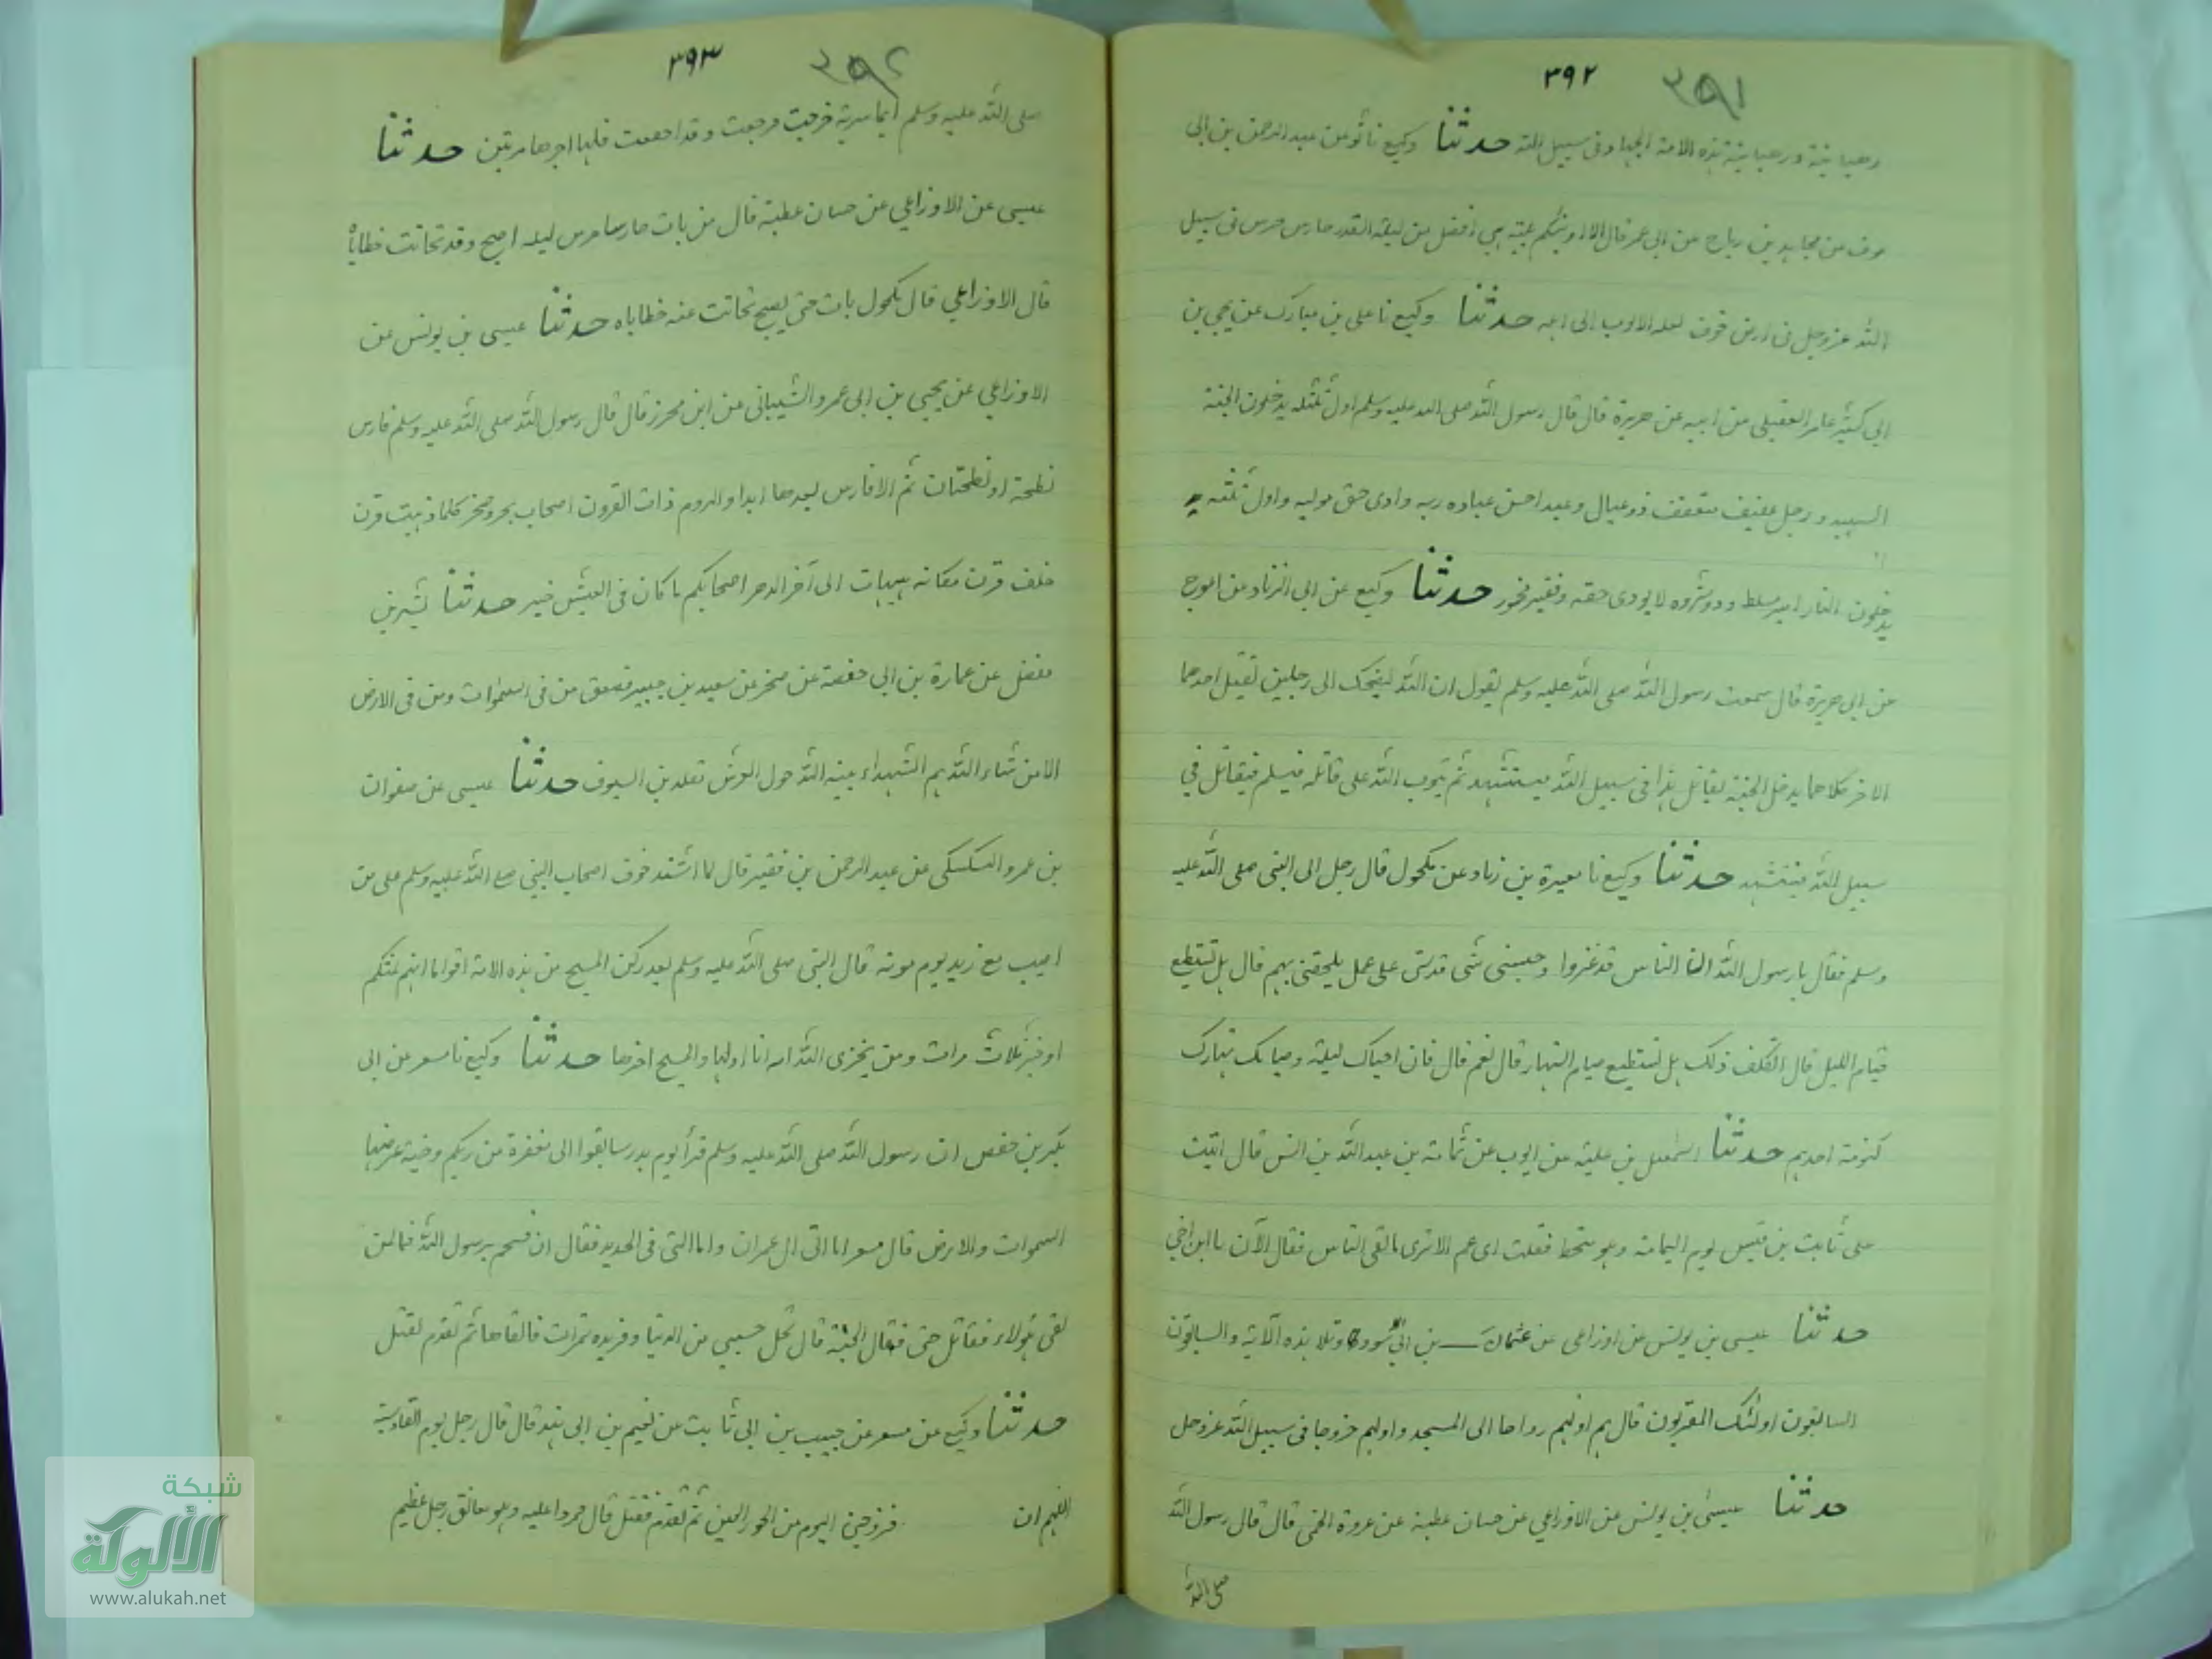 ٣٩٢ ٣٩١
رهبانية ورهبانية هذه الامة الجهاد فى سبيل الله حدثنا وكيع نا ثور عن عبد الرحمن بن ابى
عوف عن مجاهد بن رباح عن ابى عمر قال الا اونبئكم بليلة هى افضل من ليلة القدر حارس حرس فى سبيل
الله عزوجل فى ارض خوف لعله الا يوب الى اهله حدثنا وكيع نا على بن مبارك عن يحيى بن
ابي كثير عامر العقيلى من ابيه عن هريرة قال قال رسول الله صلى الله عليه وسلم اول ثلثله يدخلون الجنة
الشهيد ورجل عفيف متعفف ذو عيال وعبد احسن عباده ربه وادى حق موليه واول ثلثه
يدخلون النار امير مسلط وذو ثروه لا يودى حقه وفقير فخور حدثنا وكيع عن ابى الزناد عن اعرج
عن ابى هريرة قال سمعت رسول الله صلى الله عليه وسلم يقول ان الله ليضحك الى رجلين تقتل احدهما
الاخر كلاهما يدخل الجنة يقاتل هذا فى سبيل الله فيستشهد ثم يتوب الله على قاتله فيسلم فيقاتل في
سبيل الله فيستشهد حدثنا وكيع نا مغيرة بن زياد عن مكحول قال رجل الى النبى صلى الله عليه
وسلم فقال يا رسول الله ان الناس قد غزوا وحبسنى شى فدلنى على عمل يلحقنى بهم قال هل تستطيع
قيام الليل قال اتكلف ذلك هل تستطيع صيام النهار قال نعم قال فان احياك ليلة وصيامك نهارك
كنومة احدهم حدثنا اسمعيل بن علية عن ايوب عن ثمامة بن عبد الله بن انس قال اتيت
على ثابت بن قيس يوم اليمامة وهو يتحنط فقلت اى عم الا ترى ما لقى الناس فقال الآن يا ابن اخي
حدثنا عيسى بن يونس عن اوزاعى عن عثمان بن ابى سوده وتلا هذه الآية والسابقون
السابقون اولئك المقربون قال هم اولهم رواحا الى المسجد واولهم خروجا فى سبيل الله عزوجل
حدثنا عيسى بن يونس عن الاوزاعي عن حسان عطية عن عروة الخمى قال قال رسول الله
صلى الله
٣٩٣ ٣٩٢
صلى الله عليه وسلم ايما سرية خرجت فرجعت وقد اخفقت فلها اجرها مرتين حدثنا
عيسى عن الاوزاعي عن حسان عطية قال من بات حارسا حرس ليله اصبح وقد تحاتت خطاياه
قال الاوزاعي قال مكحول بات حتى يصبح تحاتت عنه خطاياه حدثنا عيسى بن يونس عن
الاوزاعي عن يحيى بن ابى عمرو الشيبانى عن ابن محرز قال قال رسول الله صلى الله عليه وسلم فارس
نطحة او نطحتان ثم الا فارس بعدها ابدا والروم ذات القرون اصحاب بحر وصخر كلما ذهبت قرن
خلف قرن مكانه هيهات الى آخر الدهر اصحابكم ما كان فى العيش خير حدثنا بشر بن
مفضل عن عمارة بن ابى حفصة عن صخر عن سعيد بن جبير فصعق من فى السموات ومن فى الارض
الا من شاء الله هم الشهداء ثنية الله حول العرش تقلدين السيوف حدثنا عيسى عن صفوان
بن عمرو السكسكى عن عبد الرحمن بن نفير قال لما اشتد خوف اصحاب النبي صلع الله عليه وسلم على من
اصيب مع زيد يوم موته قال النبى صلى الله عليه وسلم ليدركن المسيح من هذه الامة اقواما انهم لمثلكم
او خير ثلاث مرات ومن يخزى الله امه انا اولها والمسيح اخرها حدثنا وكيع نا مسعر عن ابى
بكر بن حفص ان رسول الله صلى الله عليه وسلم قرأ يوم بدر سابقوا الى مغفرة من ربكم وجنة عرضها
السموات والارض قال مسعر اما التى ال عمران واما التى فى الحديد فقال ابن قسحم يرسول الله فما لمن
لقى هولاء فقاتل حتى فقال الجنة قال تخل حسبي من الدنيا وفى يده تمرات فالقاها ثم تقدم لقتل
حدثنا وكيع عن مسعر عن حبيب بن ابى ثابت عن نعيم بن ابى هند قال قال رجل يوم القادسية
اللهم ان فزوجنى اليوم من الحور العين ثم تقدم فقتل قال فمروا عليه وهو معانق رجل عظيم
شبكة
الألوكة
www.alukah.net